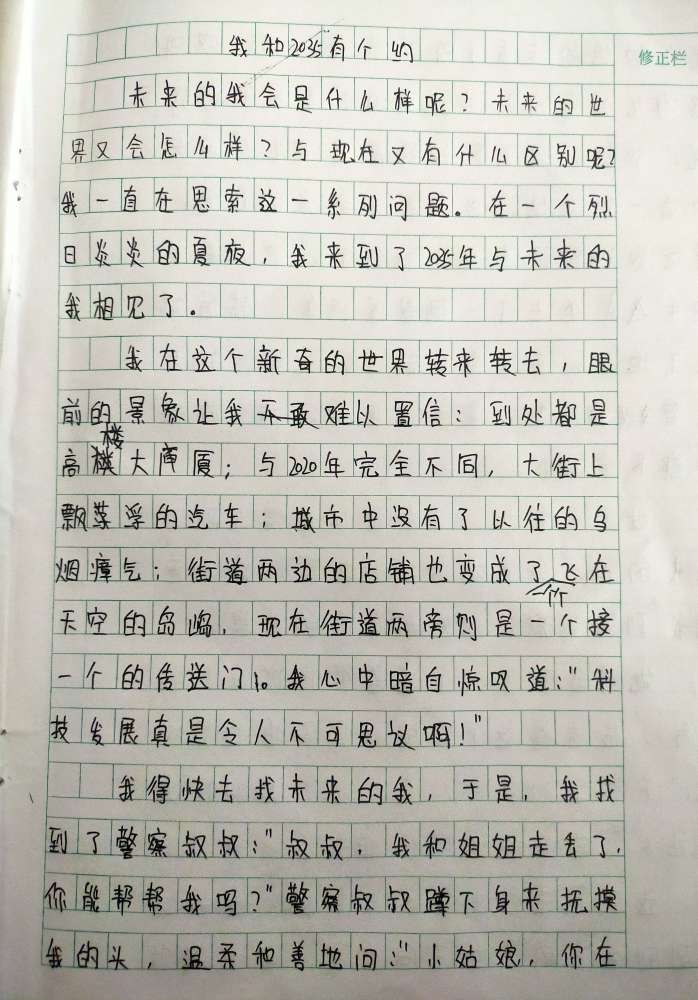 我和2035有个约
修正栏
未来的我会是什么样呢？未来的世
界又会怎么样？与现在又有什么区别呢？
我一直在思索这一系列问题。在一个烈
日炎炎的夏夜，我来到了2035年与未来的
我相见了。
我在这个新奇的世界转来转去，眼
前的景象让我不敢难以置信：到处都是
高楼大厦；与2020年完全不同，大街上
飘浮的汽车；城市中没有了以往的乌
烟瘴气；街道两边的店铺也变成了飞在
天空的岛屿，现在街道两旁则是一个接
一个的传送门。我心中暗自惊叹道："科
技发展真是令人不可思议啊！"
我得快去找未来的我，于是，我找
到了警察叔叔："叔叔，我和姐姐走丢了，
你能帮帮我吗？"警察叔叔蹲下身来抚摸
我的头，温柔和善地问："小姑娘，你在